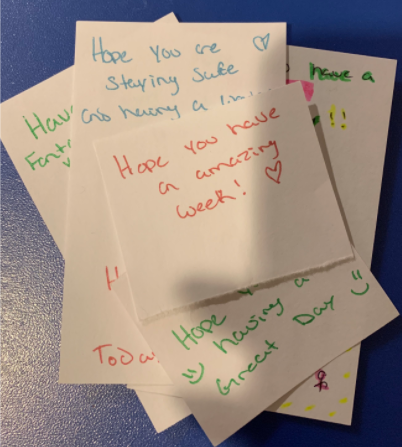 Hope you are ♡
Staying Safe
and having a
Have
have a
!!
Hope you have
an amazing
week! ♡
H
Today
Hope
having a
Great Day